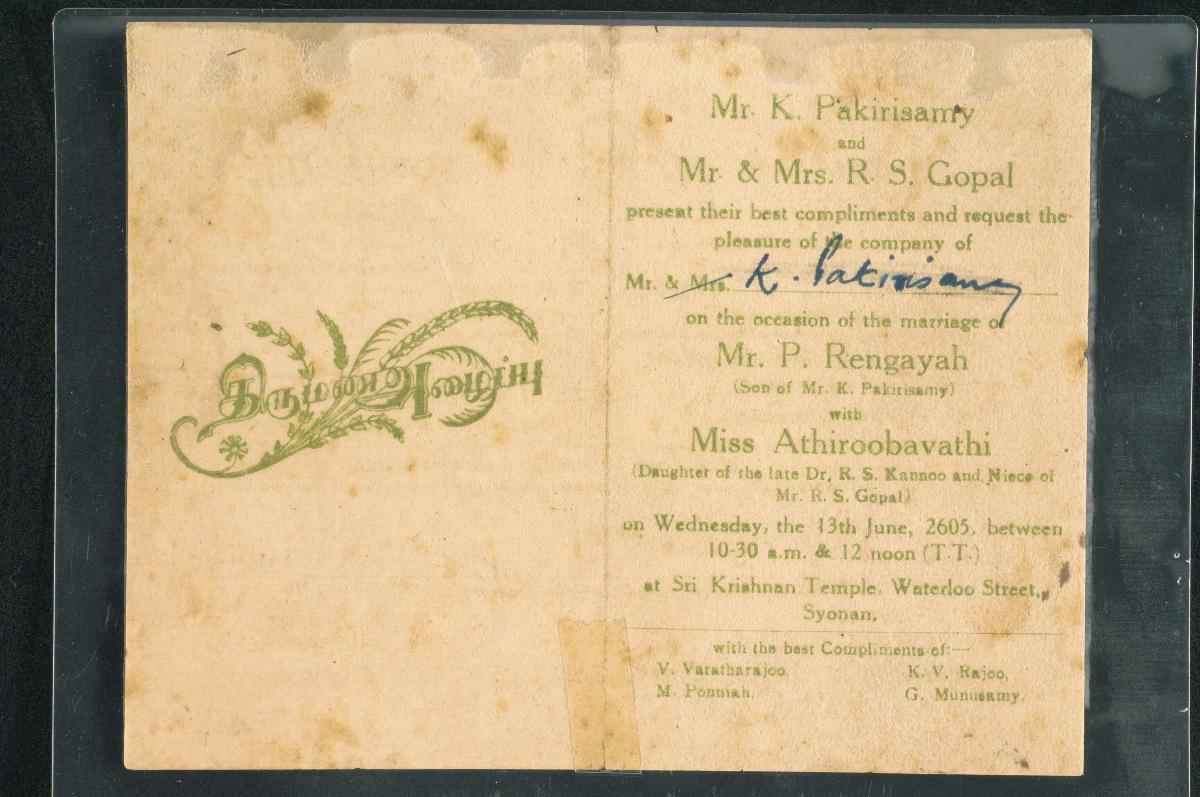 திருமணஅழைப்பு
Mr. K. Pakirisamy
and
Mr. & Mrs. R. S. Gopal
present their best compliments and request the
pleasure of the company of
Mr. & Mrs. K. Pakirisamy
on the occasion of the marriage of
Mr. P. Rengayah
(Son of Mr. K. Pakirisamy)
with
Miss Athiroobavathi
(Daughter of the late Dr, R. S. Kannoo and Niece of
Mr. R. S. Gopal)
on Wednesday, the 13th June, 2605, between
10-30 a.m. & 12 noon (T.T.)
at Sri Krishnan Temple, Waterloo Street,
Syonan,
with the best Compliments of:—
V. Varatharajoo, K. V. Rajoo,
M. Ponniah, G. Munusamy.